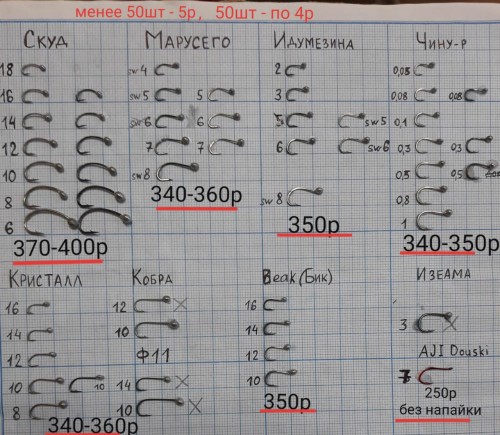 менее 50шт - 5р, 50шт - по 4р
Скуд
18
16
14
12
10
8
6
370-400р
Марусего
sw4
sw5 5
sw6 6
7 7
sw8
340-360р
Идумезина
2
3
5 sw5
6 sw6
sw8
350р
Чину-р
0,05
0,08 0,08
0,1
0,3 0,3
0,5 0,5
0,8
1
340-350р
Кристалл
16
14
12
10 10
8
340-360р
Кобра
12 X
10
Ф11
14 X
10 X
Beak (Бик)
16
14
12
10
350р
Изеама
3 X
AJI Douski
7
250р
без напайки